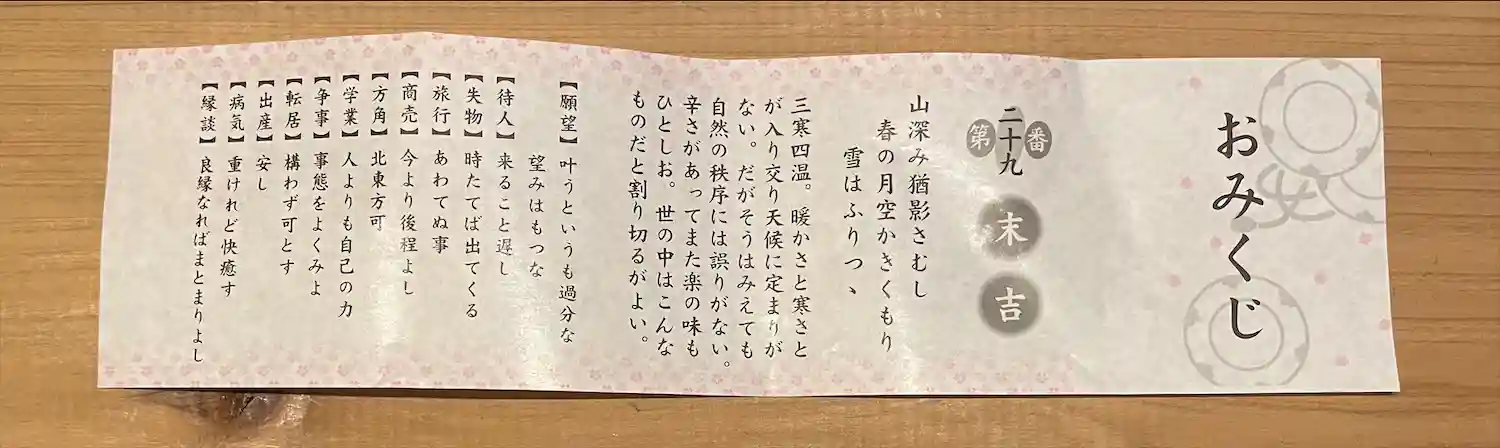 おみくじ
第二十九番
末吉
山深み猶影さむし
春の月空かきくもり
雪はふりつゝ
三寒四温。暖かさと寒さと
が入り交り天候に定まりが
ない。だがそうはみえても
自然の秩序には誤りがない。
辛さがあってまた楽の味も
ひとしお。世の中はこんな
ものだと割り切るがよい。
【願望】叶うというも過分な
望みはもつな
【待人】来ること遅し
【失物】時たてば出てくる
【旅行】あわてぬ事
【商売】今より後程よし
【方角】北東方可
【学業】人よりも自己の力
【争事】事態をよくみよ
【転居】構わず可とす
【出産】安し
【病気】重けれど快癒す
【縁談】良縁なればまとまりよし